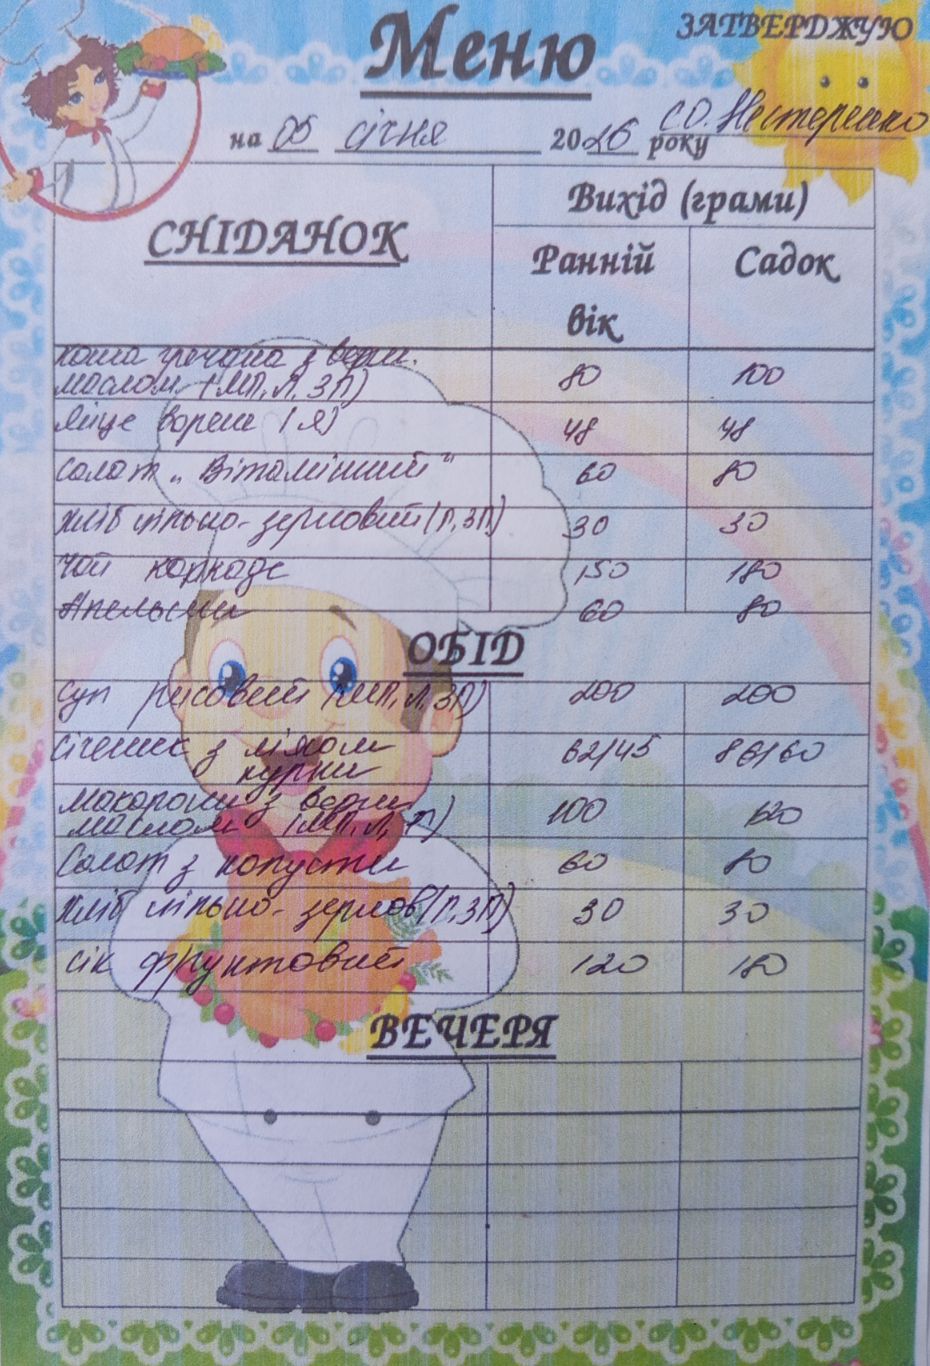 Меню
ЗАТВЕРДЖУЮ
на 05 січня 2026 року Нестеренко
СНІДАНОК
Вихід (грами)
Ранній вік
Садок
каша гречана з верш.
маслом (МП, Л, ЗП) 80 100
яйце варене (Я) 48 48
салат „Вітамінний“ 60 80
хліб цільно-зерновий (П, ЗП) 30 30
чай каркаде 150 180
Апельсин 60 80
ОБІД
суп рисовий (МП, Л, ЗП) 200 200
січеник з м'ясом
курки 62/45 86/60
макарони з верш.
маслом (МП, Л, П) 100 120
салат з капусти 60 80
хліб цільно-зернов (П, ЗП) 30 30
сік фруктовий 120 180
ВЕЧЕРЯ